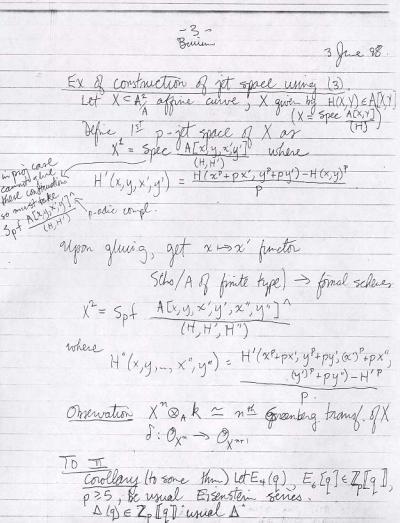 - 3 -
Buium
3 June 98
Ex of construction of jet space using (3)
Let X ⊂ A²_A affine curve; X given by H(X,Y) ∈ A[X,Y]
(X = Spec A[X,Y]/(H))
Define 1st p-jet space of X as
X² = Spec A[x,y,x',y']/(H,H') where
in proj case
cannot glue
these constructions
so must take
Spf A[x,y,x',y']^/(H,H')
p-adic compl.
H'(x,y,x',y') = H(x^p+px', y^p+py') - H(x,y)^p / p
Upon gluing, get x ↦ x' functor
Schs/A of finite type) → formal schemes
X² = Spf A[x,y,x',y',x'',y'']^ / (H,H',H'')
where
H''(x,y,...,x'',y'') = H'(x^p+px', y^p+py', (x')^p+px'',
(y')^p+py'') - H'^p / p
Observation X^n ⊗_A k ≃ nth Greenberg transf. of X
δ: O_{X^n} → O_{X^{n+1}}
TO II
Corollary (to some thm) Let E₄(q), E₆[q] ∈ Z_p[[q]],
p≥5, be usual Eisenstein series.
Δ(q) ∈ Z_p[[q]] usual Δ